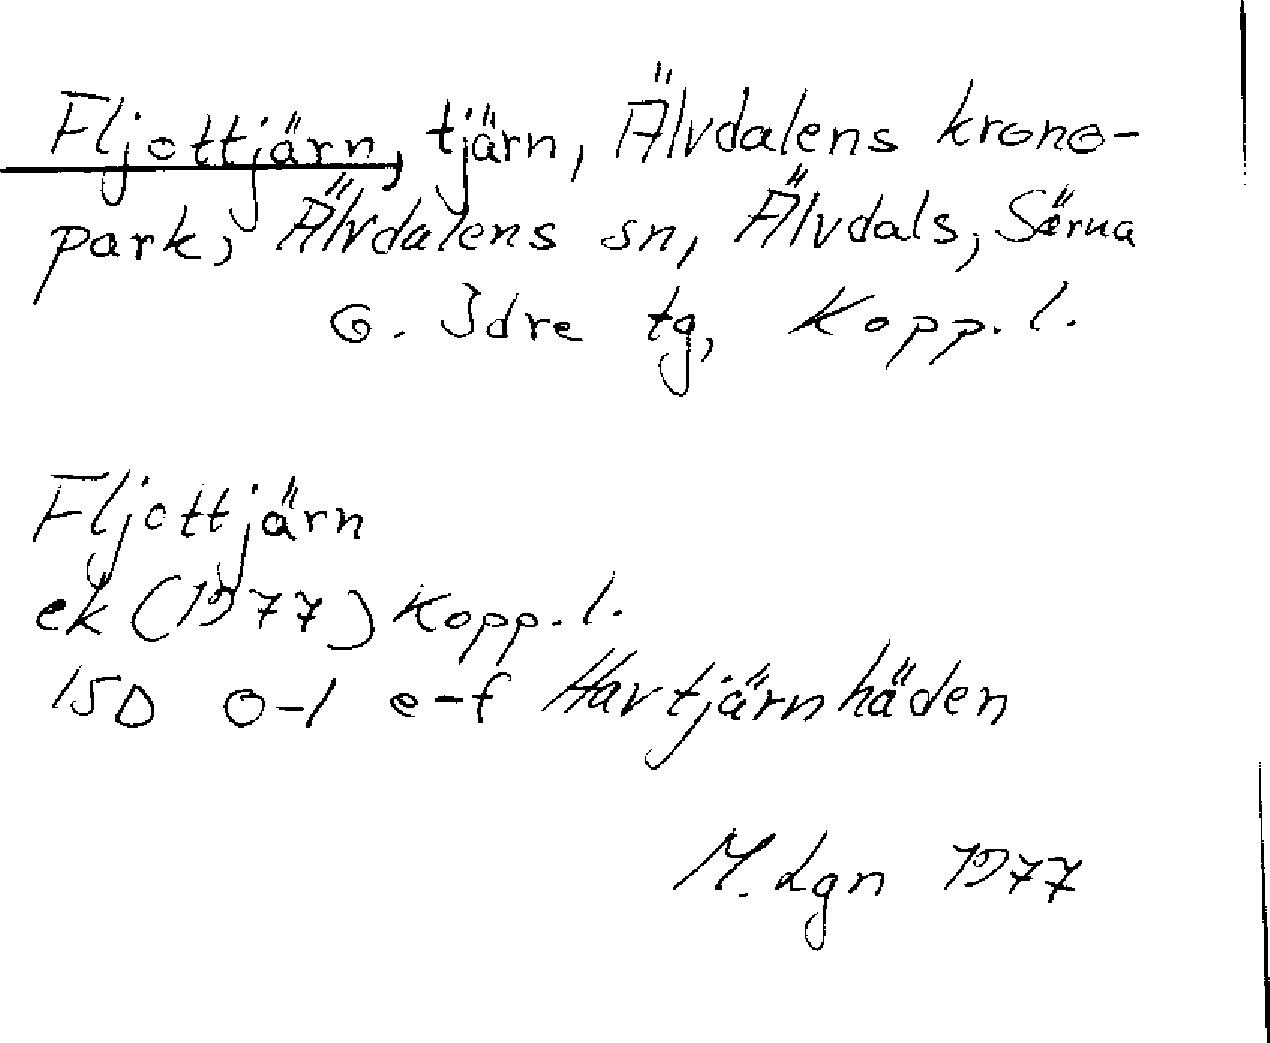 Fljottjärn, tjärn, Älvdalens krono-
park, Älvdalens sn, Älvdals, Särna
o. Idre tg, Kopp. l.
Fljottjärn
ek (1977) Kopp. l.
15D 0-1 e-f Havtjärnhäden
M. Lgn 1977